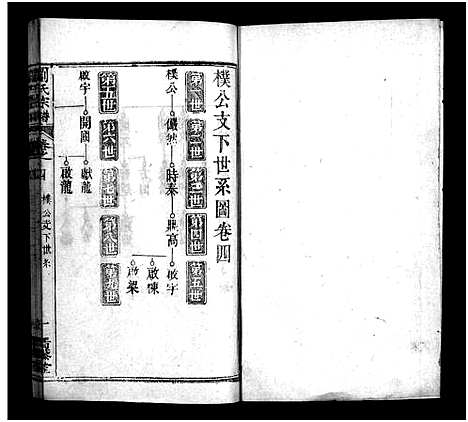 樸公支下世系圖卷四
第一世 第二世 第三世 第四世 第五世
樸公 儼然 時泰 鼎高 啟宇
啟陳
啟梁
第五世 第六世 第七世 第八世 第九世
啟宇 開國 獻龍
啟龍
劉氏宗譜
卷之四
樸公支下世系
一